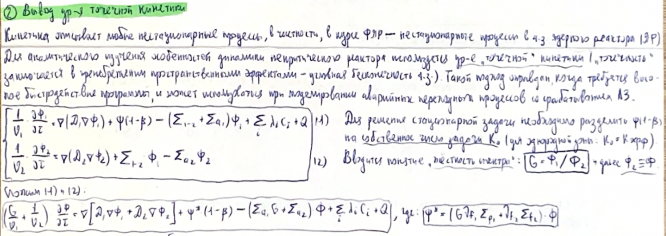 ② Вывод ур-я точечной кинетики
Кинетика описывает любые нестационарные процессы, в частности, в курсе ФЯР — нестационарные процессы в а.з. ядерного реактора (ЯР)
Для аналитического изучения особенностей динамики некритического реактора используется ур-е "точечной" кинетики ("точечность"
заключается в пренебрежении пространственными эффектами - условная бесконечность а.з.). Такой подход оправдан, когда требуется высо-
кое быстродействие программы, и может использоваться при моделировании аварийных переходных процессов со срабатыванием АЗ.
1/υ₁ ∂Φ₁/∂τ = ∇(D₁∇Φ₁) + ψ(1-β) - (Σ₁→₂ + Σa₁)Φ₁ + Σᵢ λᵢCᵢ + Q (1)
1/υ₂ ∂Φ₂/∂τ = ∇(D₂∇Φ₂) + Σ₁→₂ Φ₁ - Σa₂Φ₂ (2)
Для решения стационарной задачи необходимо разделить ψ(1-β)
на собственное число задачи K₀ (для однородной зоны: K₀ = Kэфф)
Вводится понятие "жесткость спектра": G = Φ₁/Φ₂ - далее Φ₂ ≡ Φ
(1) + (2):
(G/υ₁ + 1/υ₂) ∂Φ/∂τ = ∇[D₁∇Φ₁ + D₂∇Φ₂] + ψ*(1-β) - (Σa₁G + Σa₂)Φ + Σᵢ λᵢCᵢ + Q, где: ψ* = (G νf₁ Σf₁ + νf₂ Σf₂)·Φ